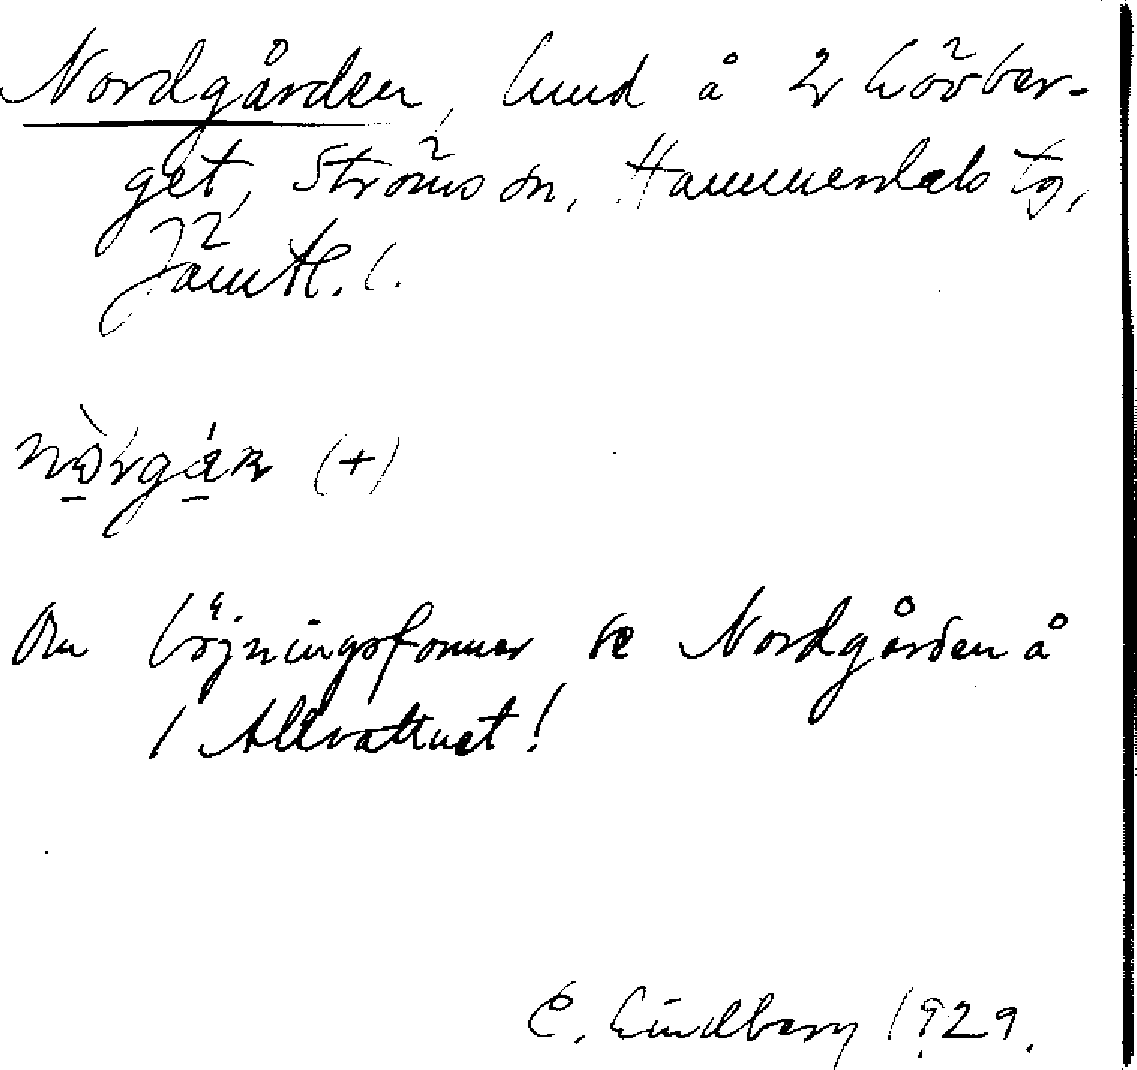 Nordgården, hmd å 2 Lövber-
get, Ströms sn, Hammerdals tg,
Jämtl. l.
nòrgán (+)
Om böjningsformer se Nordgården å
1 Allvattnet!
E. Lindberg 1929.